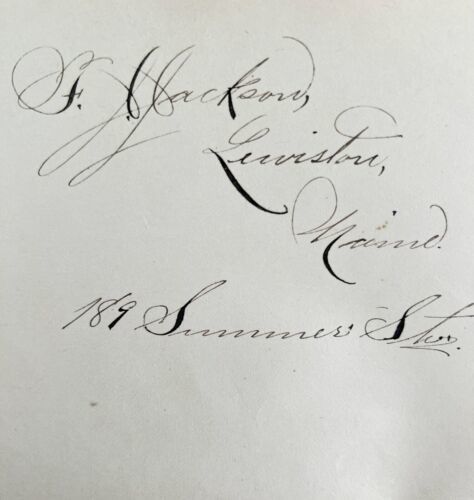 F. J. Jackson,
Lewiston,
Maine.
189 Summer St.